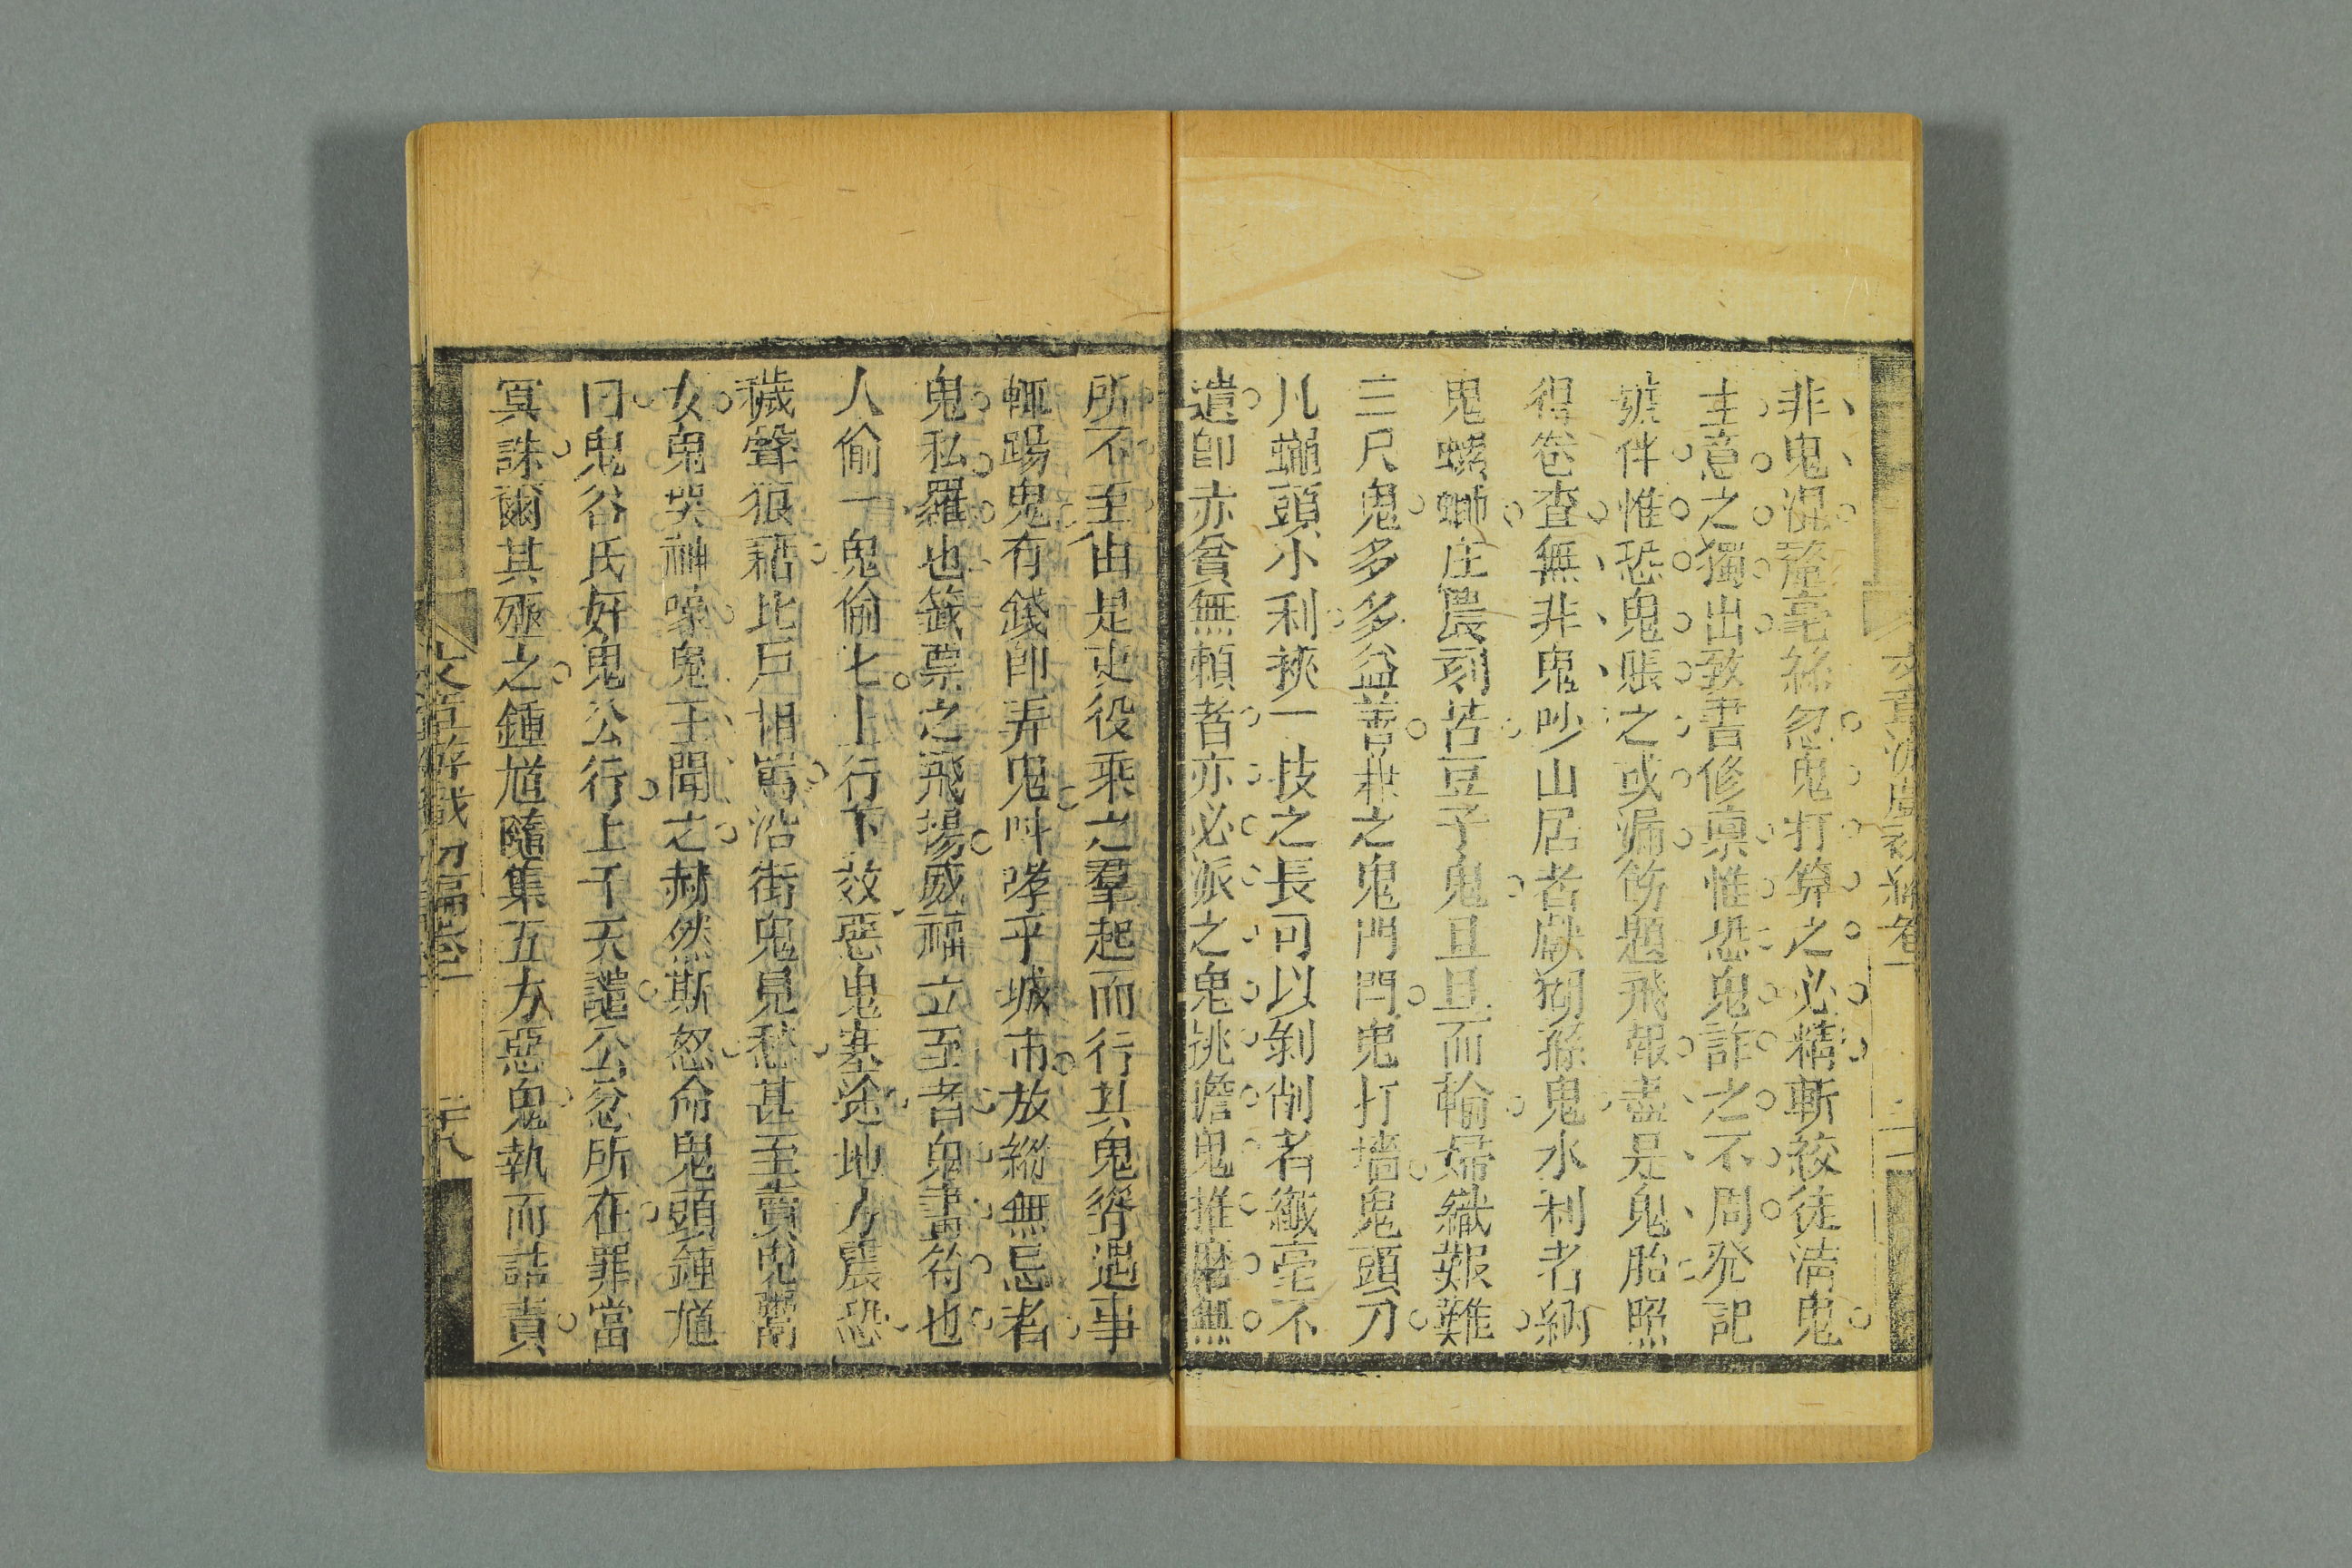 非鬼混釐毫絲忽鬼打算之必精斬絞徒流鬼
主意之獨出敦書修稟惟恐鬼詐之不周登記
賬件惟恐鬼賬之或漏傍題飛報盡是鬼胎照
得卷查無非鬼吵山居者獻猢猻鬼水利者納
鬼螺螄庄農刻苦豆子鬼且旦而輸婦織艱難
三尺鬼多多益善兼之鬼門閂鬼打墻鬼頭刀
凡蠅頭小利挾一技之長可以剝削者纖毫不
遺卽亦貧無賴者亦必派之鬼挑擔鬼推磨無
所不至由是吏役乘之羣起而行其鬼符遇事
輒踢鬼有錢卽弄鬼叫哮乎城市放縱無忌者
鬼私羅也籤票之飛揚威福立至者鬼畫符也
人偷一鬼偷七上行下效惡鬼塞途地方震恐
穢聲狼藉比戶相罵沿街鬼見愁甚至賣兒鬻
女鬼哭神嚎鬼王聞之赫然斯怒命鬼頭鍾馗
曰鬼谷氏奸鬼公行上干天譴公忿所在罪當
冥誅爾其殛之鍾馗隨集五方惡鬼執而詰責
文章游戲初編卷一
二十八